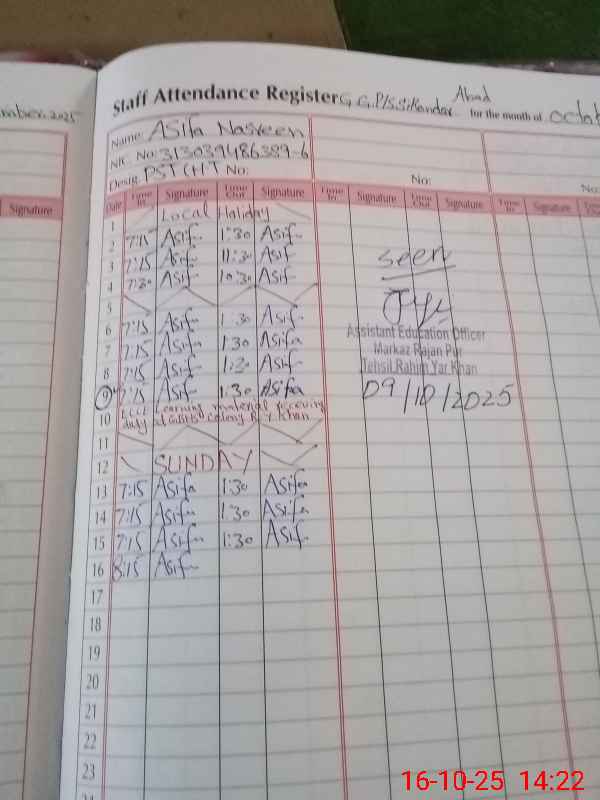 Staff Attendance Register G.G.P/S.Sikandar Abad for the month of octob
mber.2025
Name: Asifa Nasreen
NIC. No: 313039486389-6
Desig. PST (HT No: No: No:
Date Time In Signature Time Out Signature Time In Signature Time Out Signature Time In Signature
Signature
1 Local Holiday
2 7:15 Asif 1:30 Asif
3 7:15 Asif 11:30 Asif
4 7:30 Asif 10:30 Asif
seen
5
6 7:15 Asif 1:30 Asif
7 7:15 Asifa 1:30 Asifa
8 7:15 Asif 1:30 Asif
9 7:15 Asif 1:30 Asifa
Assistant Education Officer
Markaz Rajan Pur
Tehsil Rahim Yar Khan
09/10/2025
10 ECCE Learning material receiving
duty at colony R.Y.Khan
11
12 SUNDAY
13 7:15 Asifa 1:30 Asifa
14 7:15 Asifa 1:30 Asifa
15 7:15 Asifa 1:30 Asif
16 8:15 Asif
17
18
19
20
21
22
23
16-10-25 14:22